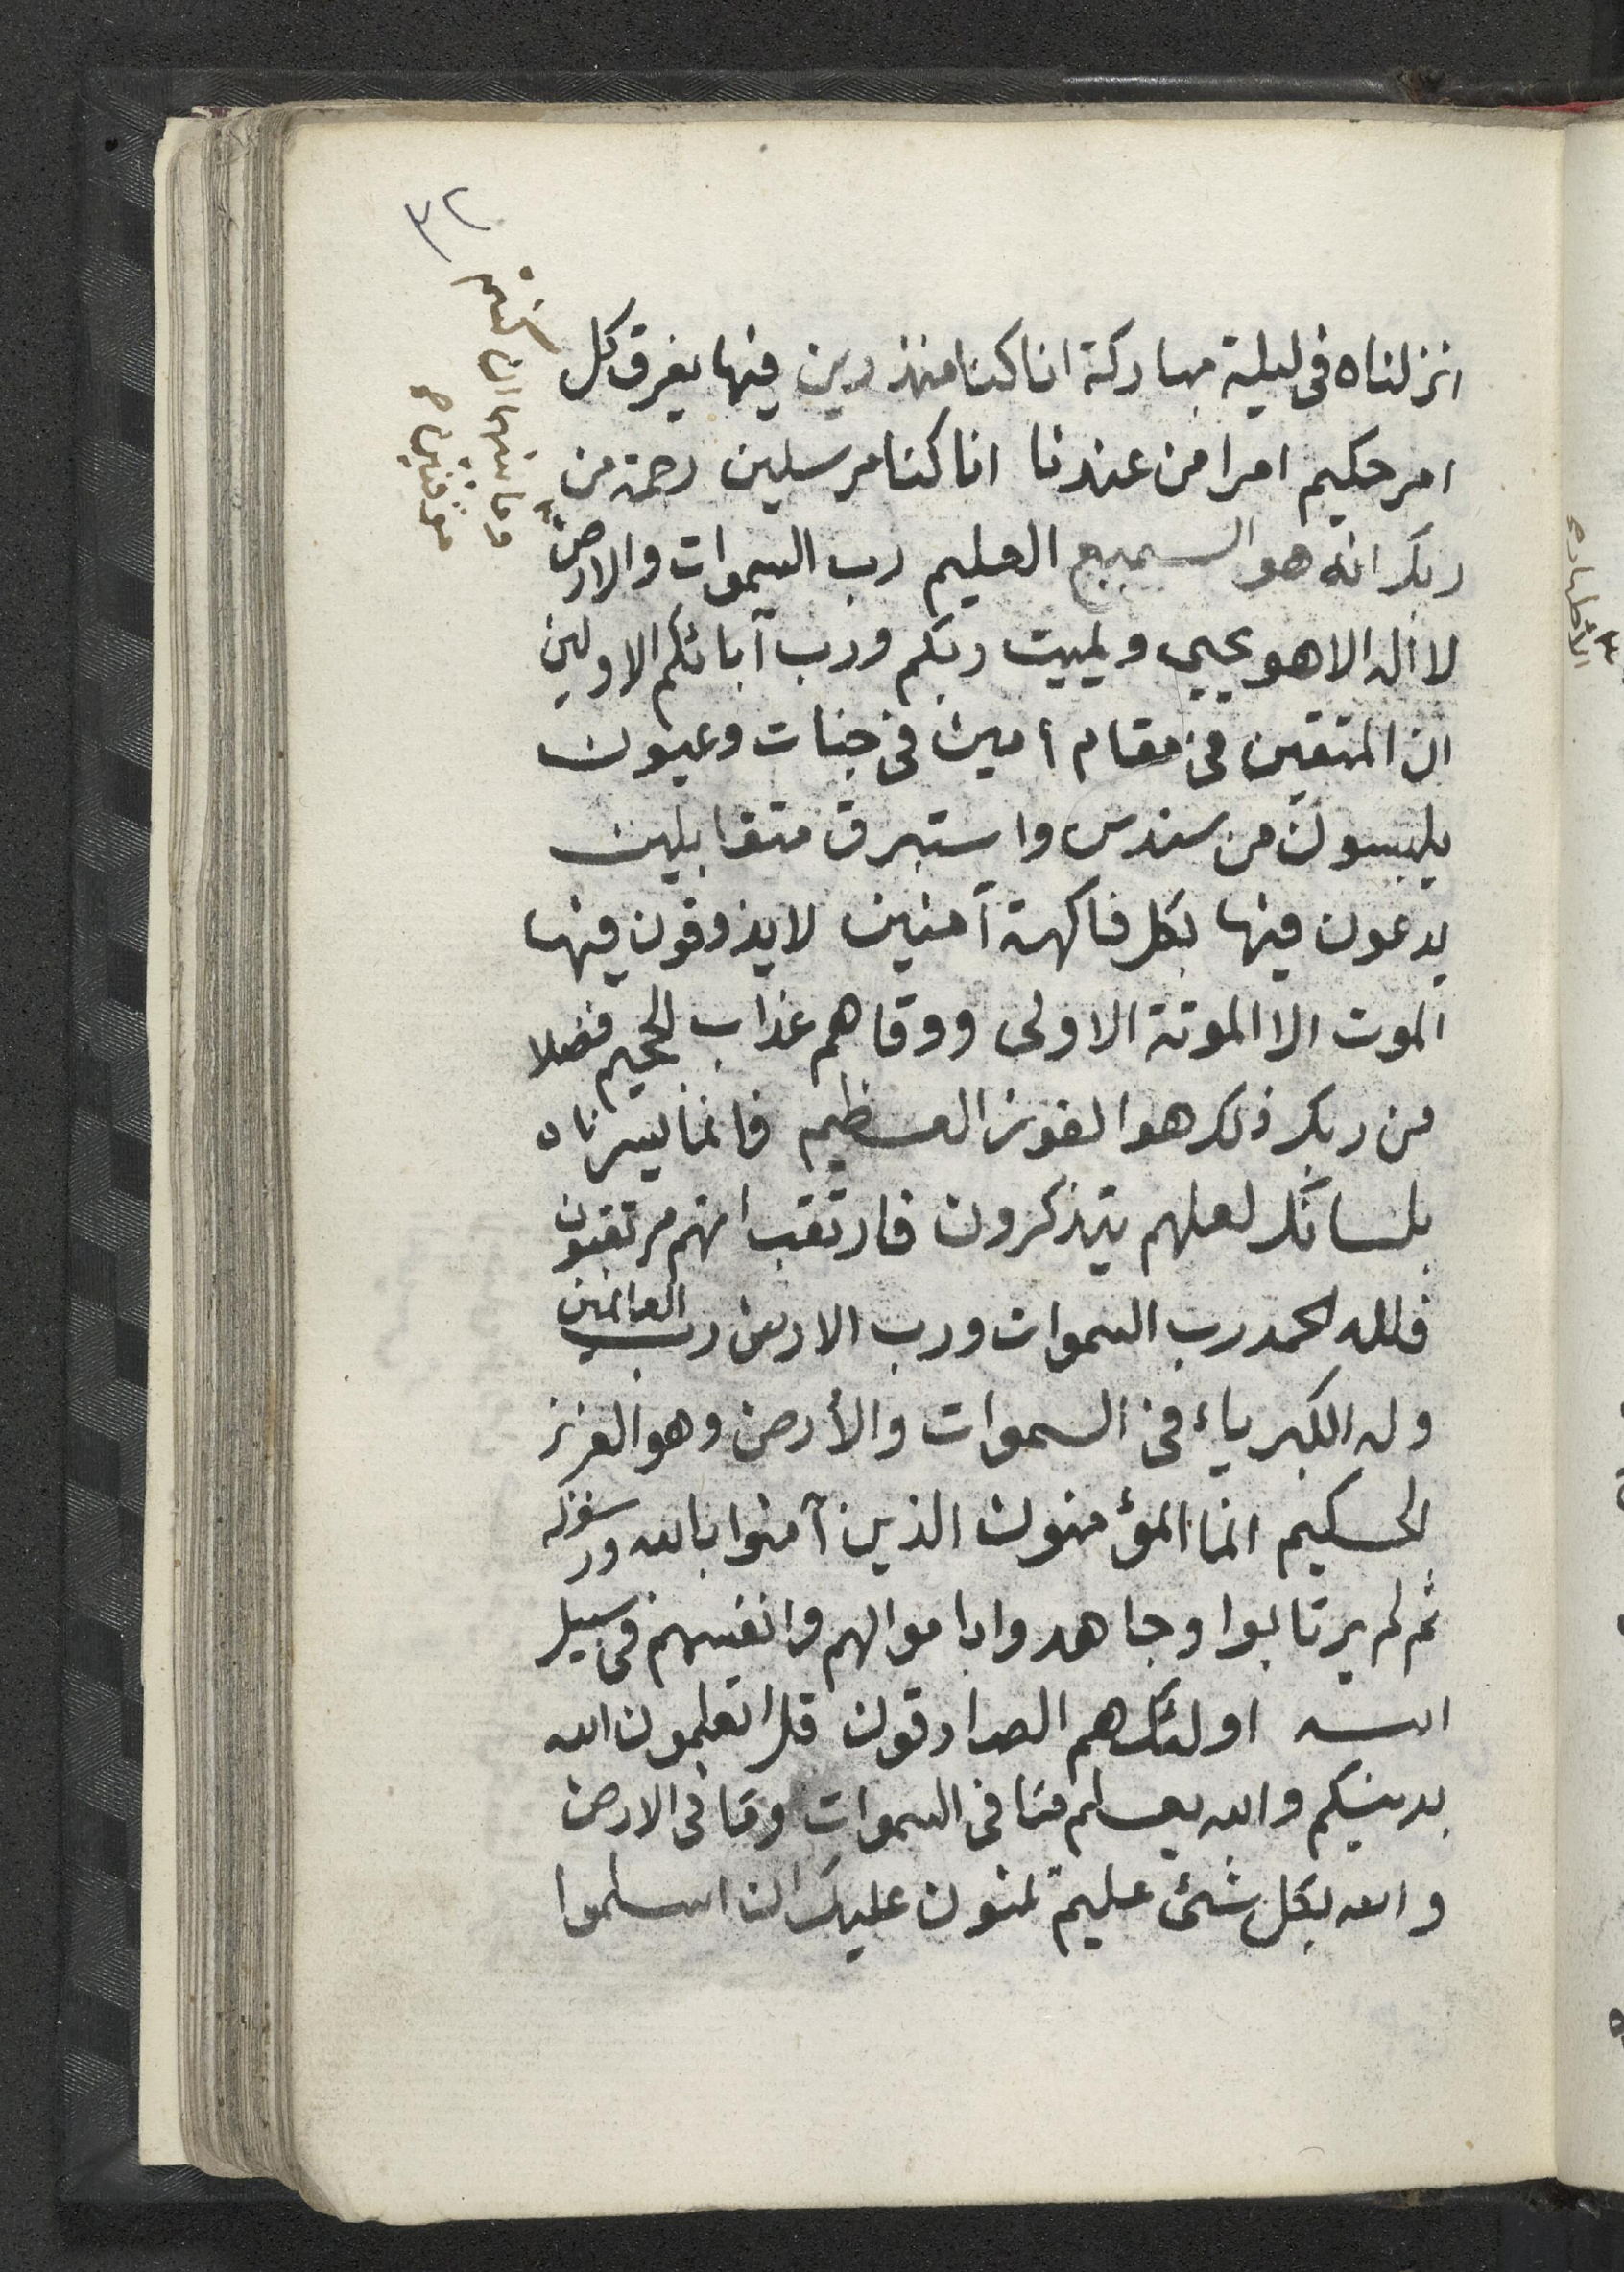 ٣٢
انزلناه فى ليلة مباركة انا كنا منذرين فيها يفرق كل
امر حكيم امرا من عندنا انا كنا مرسلين رحمة من
ربك انه هو السميع العليم رب السموات والارض
وما بينهما ان كنتم
موقنين
لا اله الا هو يحيي ويميت ربكم ورب آبائكم الاولين
ان المتقين فى مقام أمين فى جنات وعيون
يلبسون من سندس واستبرق متقابلين
يدعون فيها بكل فاكهة آمنين لا يذوقون فيها
الموت الا الموتة الاولى ووقاهم عذاب الجحيم فضلا
من ربك ذلك هو الفوز العظيم فانما يسرناه
بلسانك لعلهم يتذكرون فارتقب انهم مرتقبون
فلله الحمد رب السموات ورب الارض رب العالمين
وله الكبرياء فى السموات والأرض وهو العزيز
الحكيم انما المؤمنون الذين آمنوا بالله ورسوله
ثم لم يرتابوا وجاهدوا باموالهم وانفسهم فى سبيل
الله اولئك هم الصادقون قل اتعلمون الله
بدينكم والله يعلم ما فى السموات وما فى الارض
والله بكل شئ عليم يمنون عليك ان اسلموا